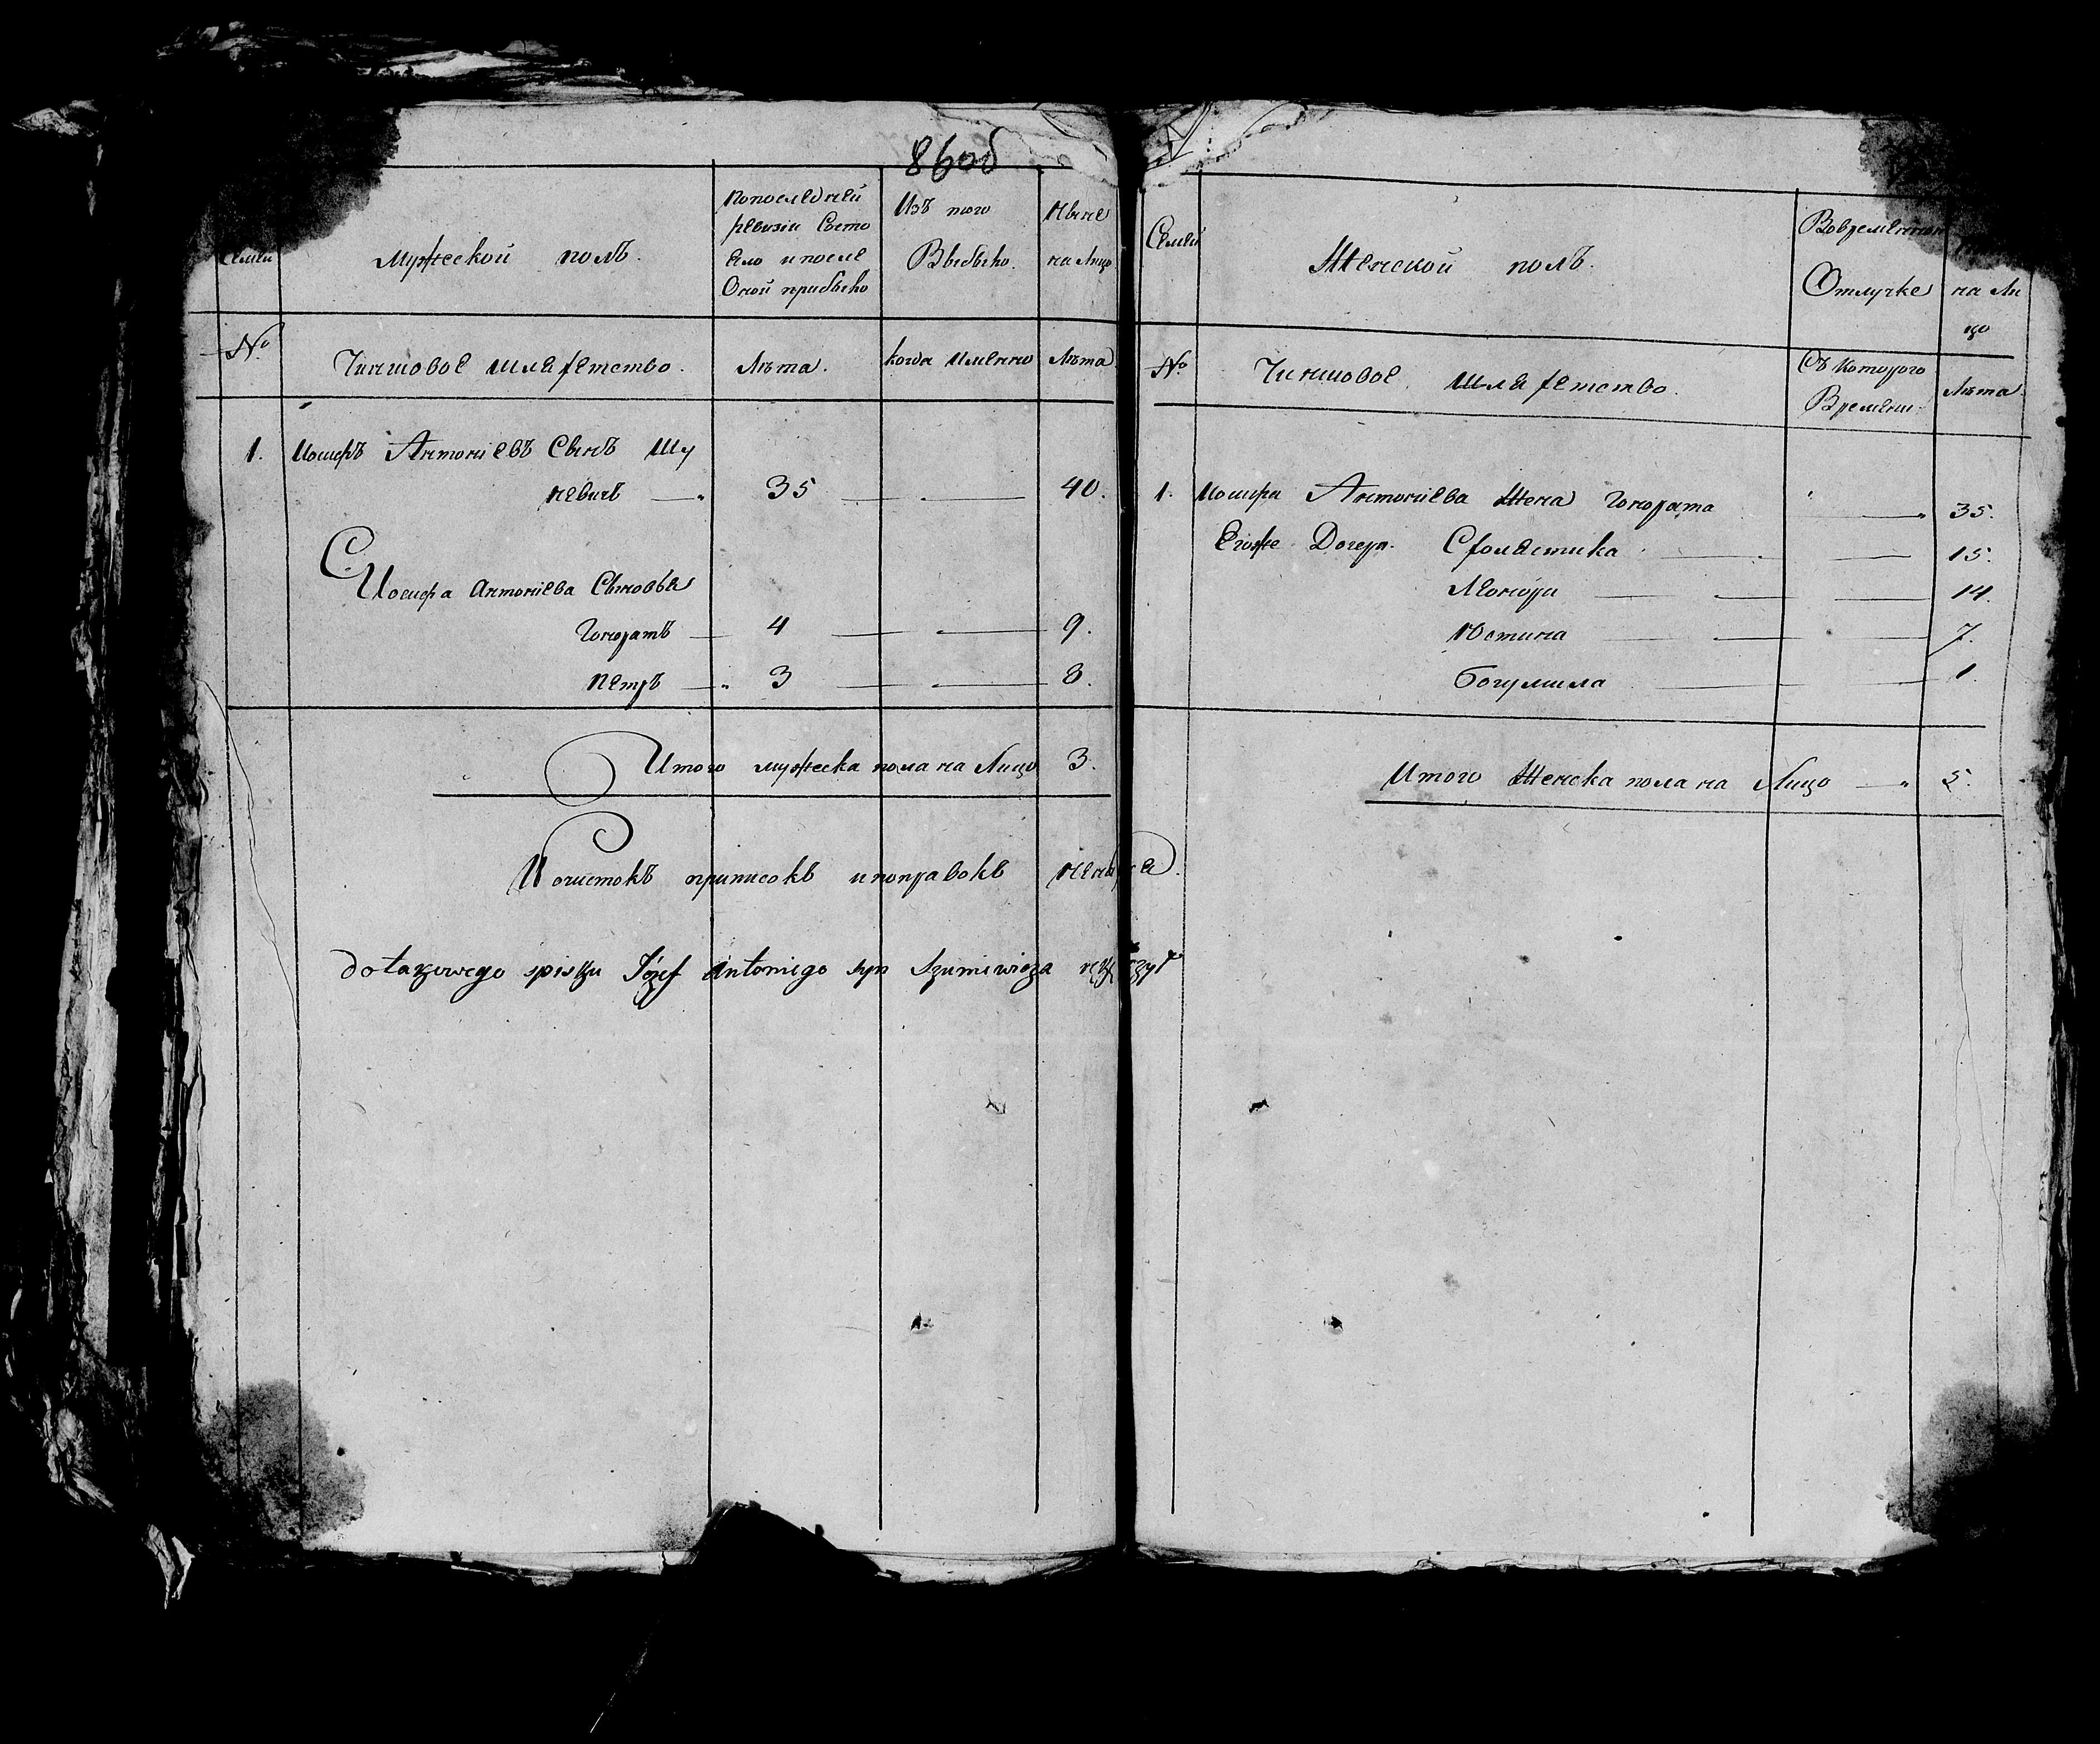 860б
Семьи
Мужеской полъ.
Попоследней
ревизіи Состо
яло и после
Оной прибыло
Изъ того
Выбыло.
Ныне
на Лицо
№
Чиншовое шляхетство.
Лѣта.
когда Именно
Лѣта
1. Иосифъ Антоніевъ Сынъ Шу
невичъ 35 40.
Иосифа Антоніева Сыновья
Гоноратъ 4 9.
Петръ 3 8.
Итого мужеска пола на Лицо 3.
Почистокъ приписокъ и поправокъ
do takowego spisku Józef Antoniego syn Szuniewicza
Семьи
Женской полъ.
Вовременной
Отлучке
на Ли
цо
№
Чиншовое шляхетство.
Съ которого
Времени.
Лѣта.
1. Иосифа Антоніева Жена Гонората 35.
Егоже Дочери. Схоластика 15.
Леонора 14.
Юстина 7.
Богумила 1.
Итого Женска пола на Лицо 5.